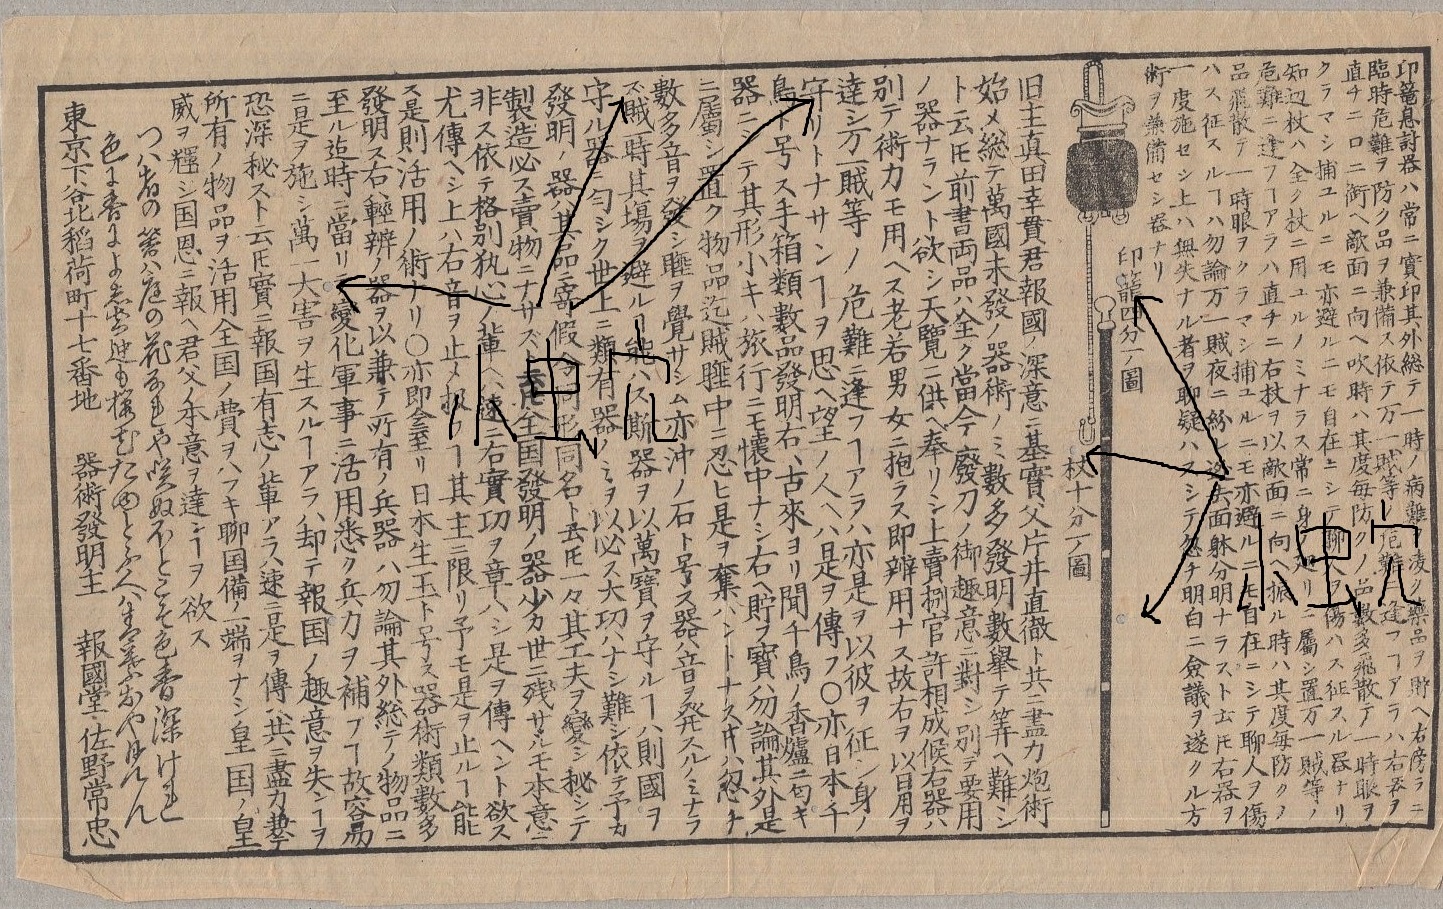 印篭息討器ハ常ニ實印其外総テ一時ノ病難ヲ凌ク薬品ヲ貯ヘ右傍ラニ
臨時危難ヲ防ク品ヲ兼備ス依テ万一賊等ノ危難ニ逢フヿアラハ右器ヲ
直チニ口ニ銜ヘ敵面ニ向ヘ吹時ハ其度毎防クノ品数多飛散テ一時眼ヲ
クラマシ捕ユルニモ亦避ルニモ自在ニシテ聊人ヲ傷ハス征スル器ナリ
知辺杖ハ全ク杖ニ用ユルノミナラス常ニ身辺リニ屬シ置万一賊等ノ
危難ニ逢フヿアラハ直チニ右杖ヲ以敵面ニ向ヘ振ル時ハ其度毎防クノ
品飛散テ一時眼ヲクラマシ捕ユルニモ亦避ルニモ自在ニシテ聊人ヲ傷
ハス征スルヿハ勿論万一賊夜ニ紛レ迯去面躰分明ナラスト云圧右器ヲ
一度施セシ上ハ無失ナル者ヲ聊疑ハスシテ忽チ明白ニ僉議ヲ遂クル方
術ヲ兼備セシ器ナリ
印籠四分一圖
杖十分一圖
小虫穴
旧主真田幸貫君報國ノ深意ニ基實父片井直徹ト共ニ盡力炮術
始メ総テ萬國未發ノ器術ノミ數多發明數舉テ算ヘ難シ
ト云圧前書両品ハ全ク當今テ廢刀ノ御趣意ニ對シ別テ要用
ノ器ナラント欲シ天覽ニ供ヘ奉リシ上賣捌官許相成候右器ハ
別テ術力モ用ヘス老若男女ニ抱ラス即辨用ナス故右ヲ以日用ヲ
達シ万一賊等ノ危難ニ逢フヿアラハ亦是ヲ以彼ヲ征シ身ノ
守リトナサンヿヲ思ヘ望ノ人ヘハ是ヲ傳フ〇亦日本千
鳥ト号ス手箱類數品發明右ハ古來ヨリ聞千鳥ノ香爐ニ匂キ
器ニシテ其形小キハ旅行ニモ懐中ナシ右ヘ貯ヲ寶勿論其外是
ニ屬シ置ク物品迄賊睡中ニ忍ヒ是ヲ奪ハントナス圧ハ忽チ
數多音ヲ發シ睡ヲ覺サシム亦沖ノ石ト号ス器ハ音ヲ発スルノミナラ
ス賊一時其場ヲ避ルヿ能ハス斯器ヲ以萬寶ヲ守ルヿハ則國ヲ
守ル器ニ匂シク世上ニ類有器ノミヲ以必ス大功ハナシ難シ依テ予カ
發明ノ器ハ其品ニ寄假令同形同名ト云圧一々其工夫ヲ變シ秘シテ
製造必ス賣物ニナサズト雖圧全国發明ノ器少カ世ニ残サルモ本意ニ
非ス依テ格別執心ノ輩ヘハ速ニ右實功ヲ章ハシ是ヲ傳ヘント欲ス
尤傳ヘシ上ハ右音ヲ止メ扱フヿ其主ニ限リ予モ是ヲ止ルヿ能
ス是則活用ノ術ナリ〇亦即至リ日本生玉ト号ス器術類數多
發明ス右ハ輕辨ノ器ヲ以兼テ所有ノ兵器ハ勿論其外総テノ物品ニ
至ル迄時ニ當リ變化軍事ニ活用悉ク兵力ヲ補フヿ故容易
ニ是ヲ施シ萬一大害ヲ生スルヿアラハ却テ報国ノ趣意ヲ失ンヿヲ
恐深秘スト云圧實ニ報国有志ノ輩アラハ速ニ是ヲ傳ヘ共ニ盡力普テ
所有ノ物品ヲ活用全国ノ費ヲハブキ聊国備ノ一端ヲナシ皇国ノ皇
威ヲ輝シ国恩ニ報ヘ君父ノ本意ヲ達シヿヲ欲ス
小虫穴
東京下谷北稲荷町十七番地 器術發明主 報國堂 佐野常忠